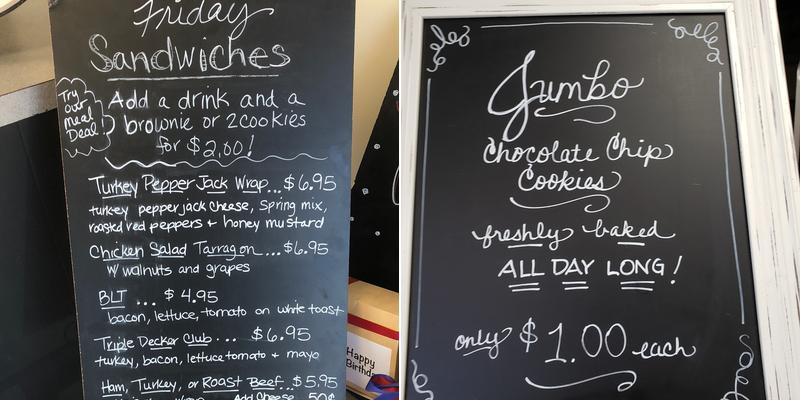 Friday
Sandwiches
Try
our
meal
Deal!
Add a drink and a
brownie or 2cookies
for $2.00!
Turkey Pepper Jack Wrap...$6.95
turkey pepper jack cheese, Spring mix,
roasted red peppers + honey mustard
Chicken Salad Tarragon ...$6.95
w/ walnuts and grapes
BLT ... $4.95
bacon, lettuce, tomato on white toast
Triple Decker Club... $6.95
turkey, bacon, lettuce tomato + mayo
Ham, Turkey, or Roast Beef..$5.95
Add Cheese 50¢
Happy
Birthda
Jumbo
Chocolate Chip
Cookies
freshly baked
ALL DAY LONG!
only $1.00 each